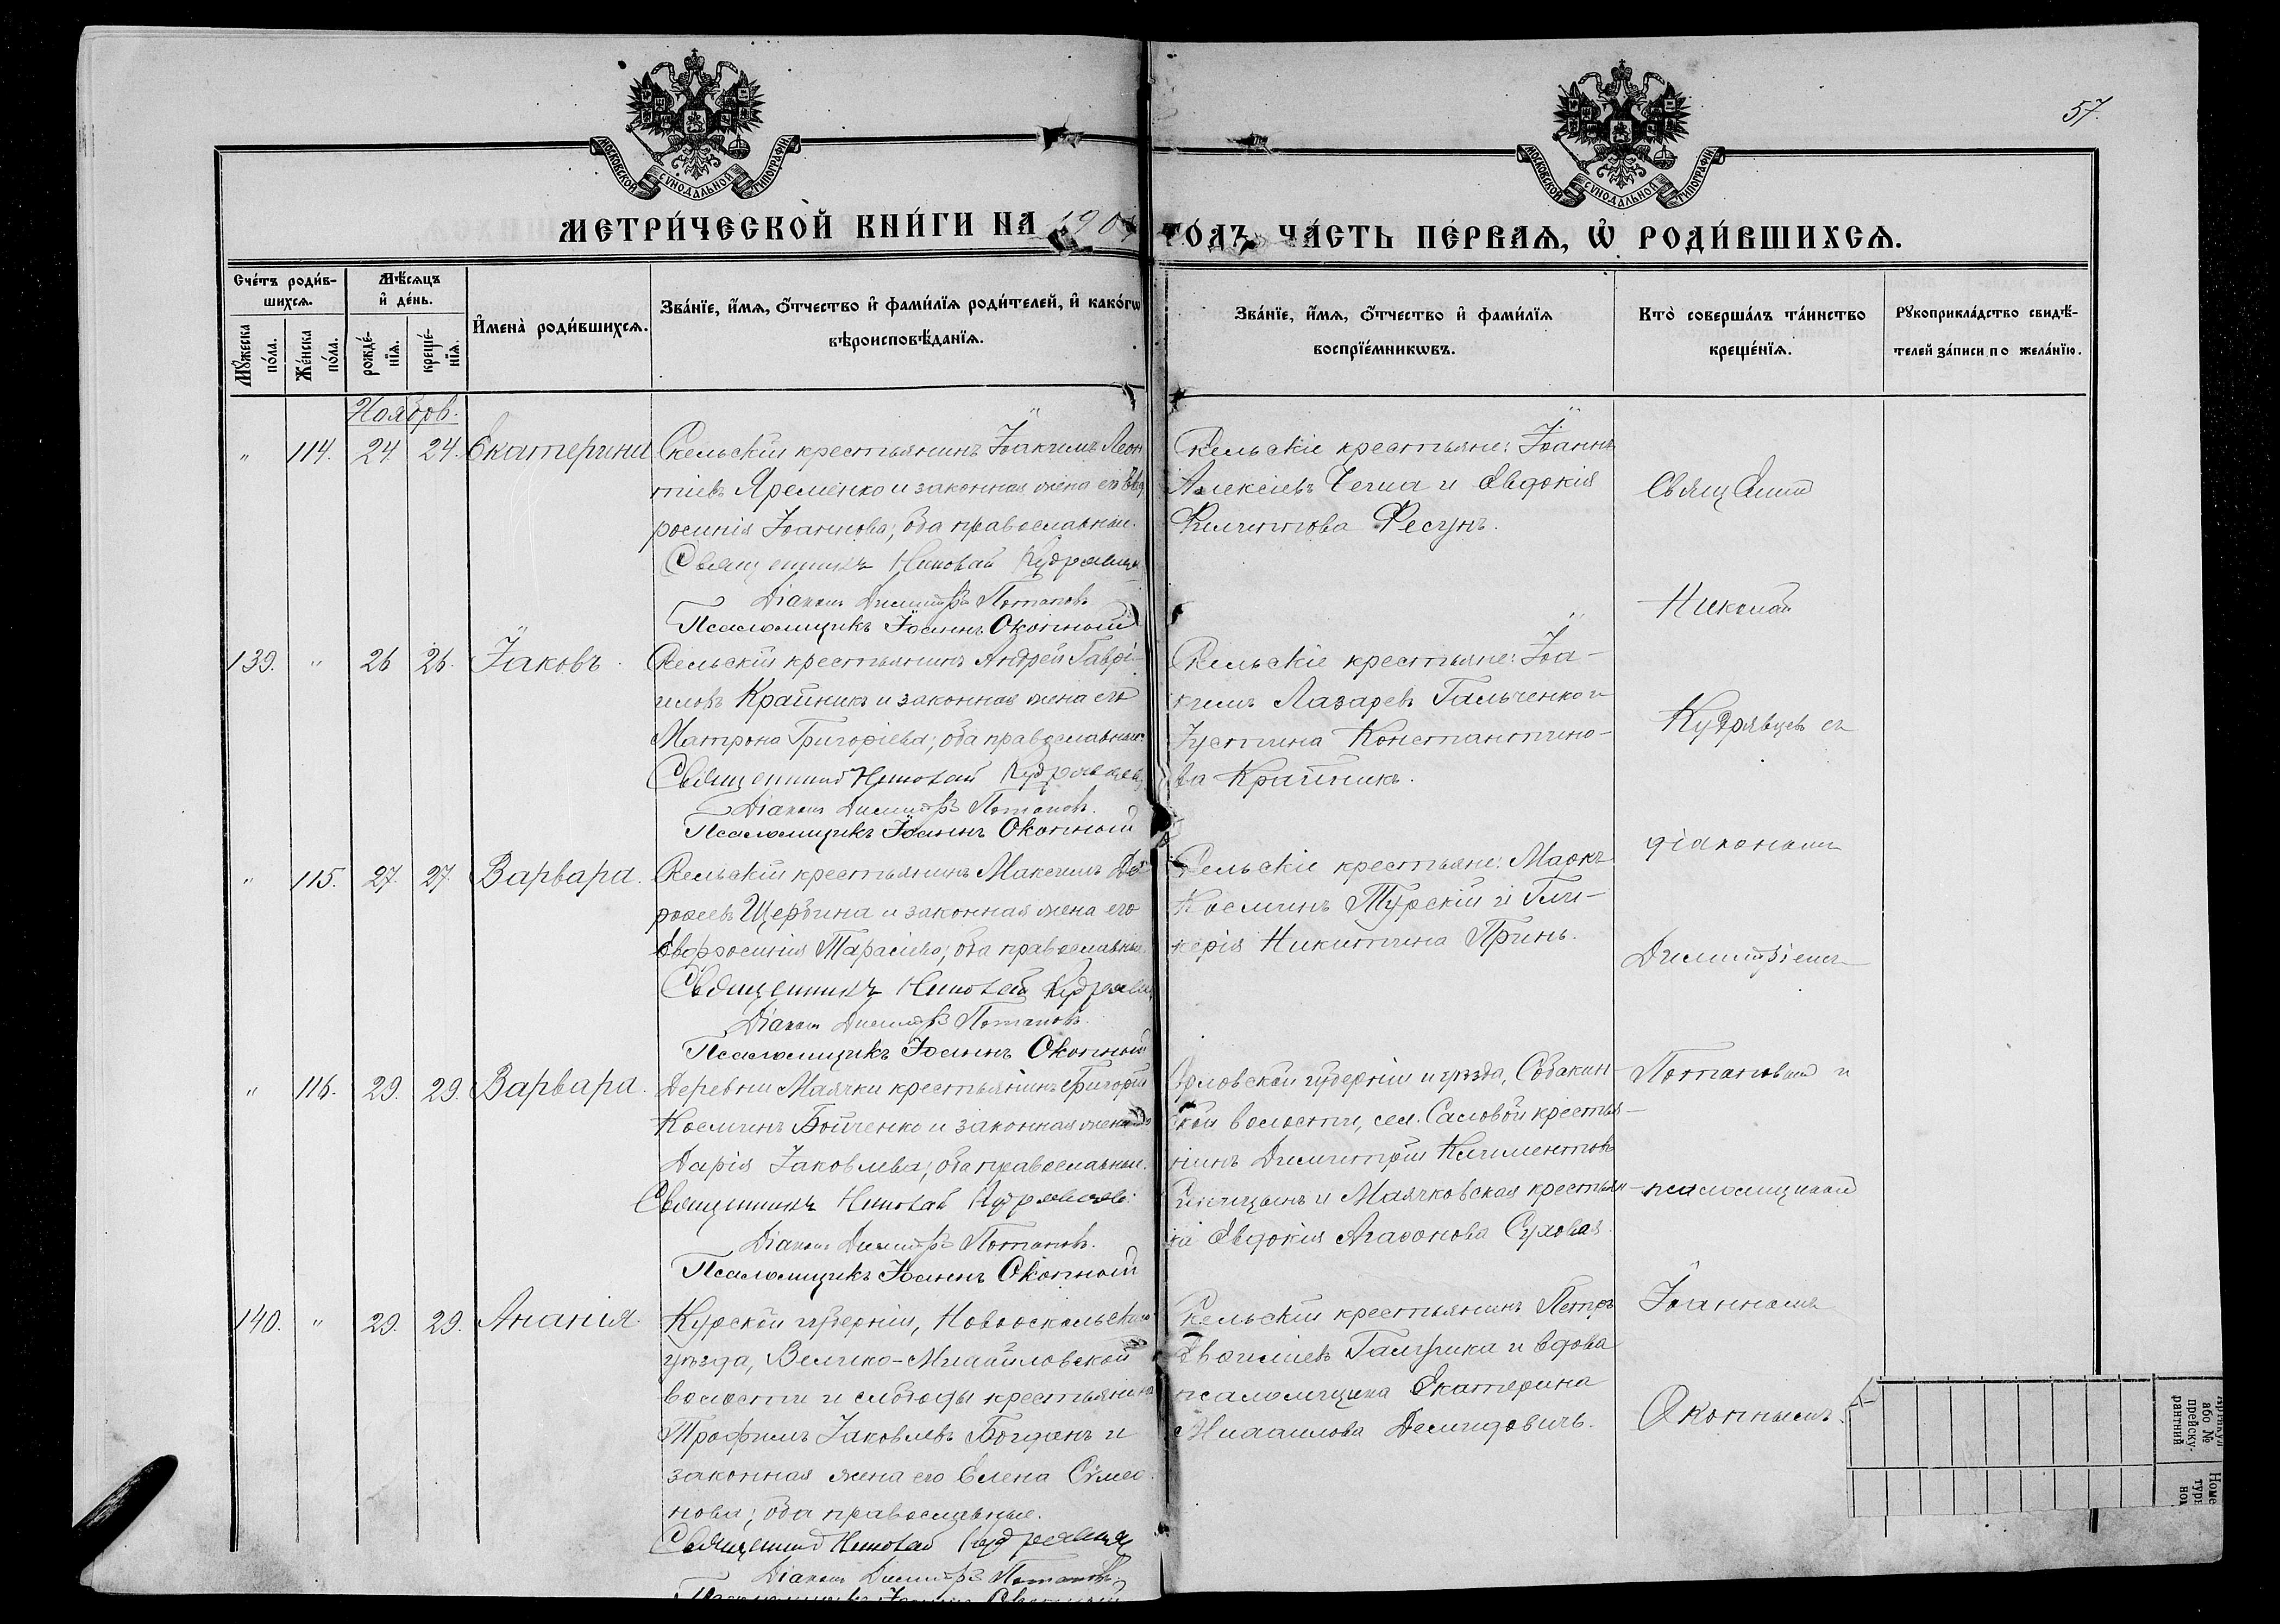 57.
МОСКОВСКОЙ СѴНОДАЛЬНОЙ ТИПОГРАФІИ
МОСКОВСКОЙ СѴНОДАЛЬНОЙ ТИПОГРАФІИ
МЕТРИ́ЧЕСКОЙ КНИ́ГИ НА 190 ГО́ДЪ, ЧА́СТЬ ПЕ́РВАѦ, Ѡ҆ РОДИ́ВШИХСѦ.
Сче́тъ роди́в-
шихсѧ.
Мѣ́сѧцъ
и҆ де́нь.
Мꙋ́жеска по́ла.
Же́нска по́ла.
рожде́-нїѧ.
креще́-нїѧ.
И҆мена̀ роди́вшихсѧ.
Зва́нїе, и҆́мѧ, ѻ҆́тчество и҆ фами́лїѧ роди́телей, и҆ како́гѡ
вѣроисповѣ́данїѧ.
Зва́нїе, и҆́мѧ, ѻ҆́тчество и҆ фами́лїѧ
воспрїе́мникѡвъ.
Кто̀ соверша́лъ та́инство
креще́нїѧ.
Рꙋкоприкла́дство свидѣ́-
телей за́писи по жела́нїю.
Ноябрь.
" 114. 24. 24. Екатерина
Рельскій крестьянинъ Іоакимъ Леон
тіевъ Яременко и законная жена его Евф
росинія Іоаннова; оба православные.
Священникъ Николай Кудрявцевъ
Діаконъ Димитрій Потаповъ
Псаломщикъ Іоаннъ Окопный
Рельскіе крестьяне: Іоаннъ
Алексіевъ Чегша и Евдокія
Филиппова Фесунъ.
139. " 26 26. Іаковъ.
Рельскій крестьянинъ Андрей Гаврі-
иловъ Крайникъ и законная жена его
Матрона Григоріева; оба православные.
Священникъ Николай Кудрявцевъ
Діаконъ Димитрій Потаповъ.
Псаломщикъ Іоаннъ Окопный
Рельскіе крестьяне: Іоа-
кимъ Лазаревъ Гальченко и
Іустина Константино-
ва Крайникъ.
" 115. 27. 27. Варвара.
Рельскій крестьянинъ Максимъ До
роѳеевъ Щербина и законная жена его
Евфросинія Тарасіева; оба православные.
Священникъ Николай Кудрявцевъ
Діаконъ Димитрій Потаповъ.
Псаломщикъ Іоаннъ Окопный
Рельскіе крестьяне: Маркъ
Косминъ Турскій и Гли-
керія Никитина Принь.
" 116. 29. 29. Варвара.
Деревни Маячки крестьянинъ Григорій
Косминъ Бойченко и законная жена его
Дарія Іаковлева; оба православные.
Священникъ Николай Кудрявцевъ.
Діаконъ Димитрій Потаповъ.
Псаломщикъ Іоаннъ Окопный
Орловской губерніи и уѣзда, Собакин-
ской волости, сел. Саловой крестья-
нинъ Димитрій Климентовъ
и Маячковская крестьян-
ка Евдокія Агаѳонова Суховая.
140. " 29. 29. Ананія.
Курской губерніи, Новооскольскаго
уѣзда, Велико-Михайловской
волости и слободы крестьянинъ
Трофимъ Іаковлевъ Богданъ и
законная жена его Елена Сѵмео-
нова; оба православные.
Священникъ Николай Кудрявцевъ
Діаконъ Димитрій Потаповъ.
Псаломщикъ Іоаннъ Окопный
Рельскій крестьянинъ Петръ
Евѳиміевъ Галушка и вдова
псаломщика Екатерина
Михаилова Демидовичъ.
Священникъ
Николай
Кудрявцевъ съ
діакономъ
Димитріемъ
Потаповымъ и
псаломщикомъ
Іоанномъ
Окопнымъ.
або №
прейску-
рантний